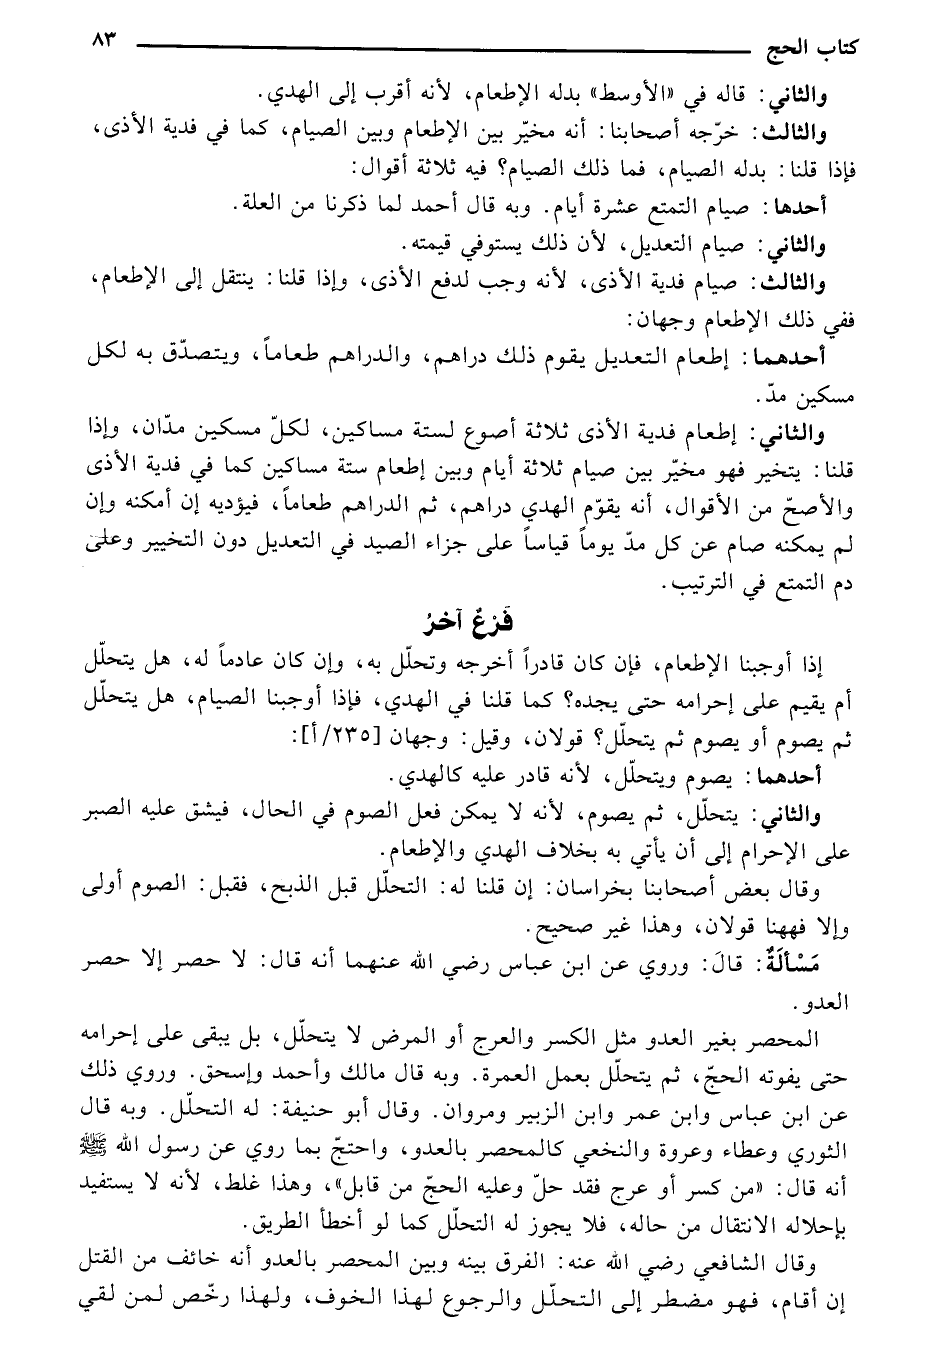 كتاب الحج ٨٣
والثاني: قاله في «الأوسط» بدله الإطعام، لأنه أقرب إلى الهدي.
والثالث: خرّجه أصحابنا: أنه مخيّر بين الإطعام وبين الصيام، كما في فدية الأذى،
فإذا قلنا: بدله الصيام، فما ذلك الصيام؟ فيه ثلاثة أقوال:
أحدها: صيام التمتع عشرة أيام. وبه قال أحمد لما ذكرنا من العلة.
والثاني: صيام التعديل، لأن ذلك يستوفي قيمته.
والثالث: صيام فدية الأذى، لأنه وجب لدفع الأذى، وإذا قلنا: ينتقل إلى الإطعام،
ففي ذلك الإطعام وجهان:
أحدهما: إطعام التعديل يقوم ذلك دراهم، والدراهم طعاماً، ويتصدّق به لكل
مسكين مدّ.
والثاني: إطعام فدية الأذى ثلاثة أصوع لستة مساكين، لكلّ مسكين مدّان، وإذا
قلنا: يتخير فهو مخيّر بين صيام ثلاثة أيام وبين إطعام ستة مساكين كما في فدية الأذى
والأصحّ من الأقوال، أنه يقوّم الهدي دراهم، ثم الدراهم طعاماً، فيؤديه إن أمكنه وإن
لم يمكنه صام عن كل مدّ يوماً قياساً على جزاء الصيد في التعديل دون التخيير وعلى
دم التمتع في الترتيب.
فَرْعٌ آخرُ
إذا أوجبنا الإطعام، فإن كان قادراً أخرجه وتحلّل به، وإن كان عادماً له، هل يتحلّل
أم يقيم على إحرامه حتى يجده؟ كما قلنا في الهدي، فإذا أوجبنا الصيام، هل يتحلّل
ثم يصوم أو يصوم ثم يتحلّل؟ قولان، وقيل: وجهان [٢٣٥/أ]:
أحدهما: يصوم ويتحلّل، لأنه قادر عليه كالهدي.
والثاني: يتحلّل، ثم يصوم، لأنه لا يمكن فعل الصوم في الحال، فيشق عليه الصبر
على الإحرام إلى أن يأتي به بخلاف الهدي والإطعام.
وقال بعض أصحابنا بخراسان: إن قلنا له: التحلّل قبل الذبح، فقبل: الصوم أولى
وإلا فههنا قولان، وهذا غير صحيح.
مَسْألَةٌ: قالَ: وروي عن ابن عباس رضي الله عنهما أنه قال: لا حصر إلا حصر
العدو.
المحصر بغير العدو مثل الكسر والعرج أو المرض لا يتحلّل، بل يبقى على إحرامه
حتى يفوته الحجّ، ثم يتحلّل بعمل العمرة. وبه قال مالك وأحمد وإسحق. وروي ذلك
عن ابن عباس وابن عمر وابن الزبير ومروان. وقال أبو حنيفة: له التحلّل. وبه قال
الثوري وعطاء وعروة والنخعي كالمحصر بالعدو، واحتجّ بما روي عن رسول الله ﷺ
أنه قال: «من كسر أو عرج فقد حلّ وعليه الحجّ من قابل»، وهذا غلط، لأنه لا يستفيد
بإحلاله الانتقال من حاله، فلا يجوز له التحلّل كما لو أخطأ الطريق.
وقال الشافعي رضي الله عنه: الفرق بينه وبين المحصر بالعدو أنه خائف من القتل
إن أقام، فهو مضطر إلى التحلّل والرجوع لهذا الخوف، ولهذا رخّص لمن لقي